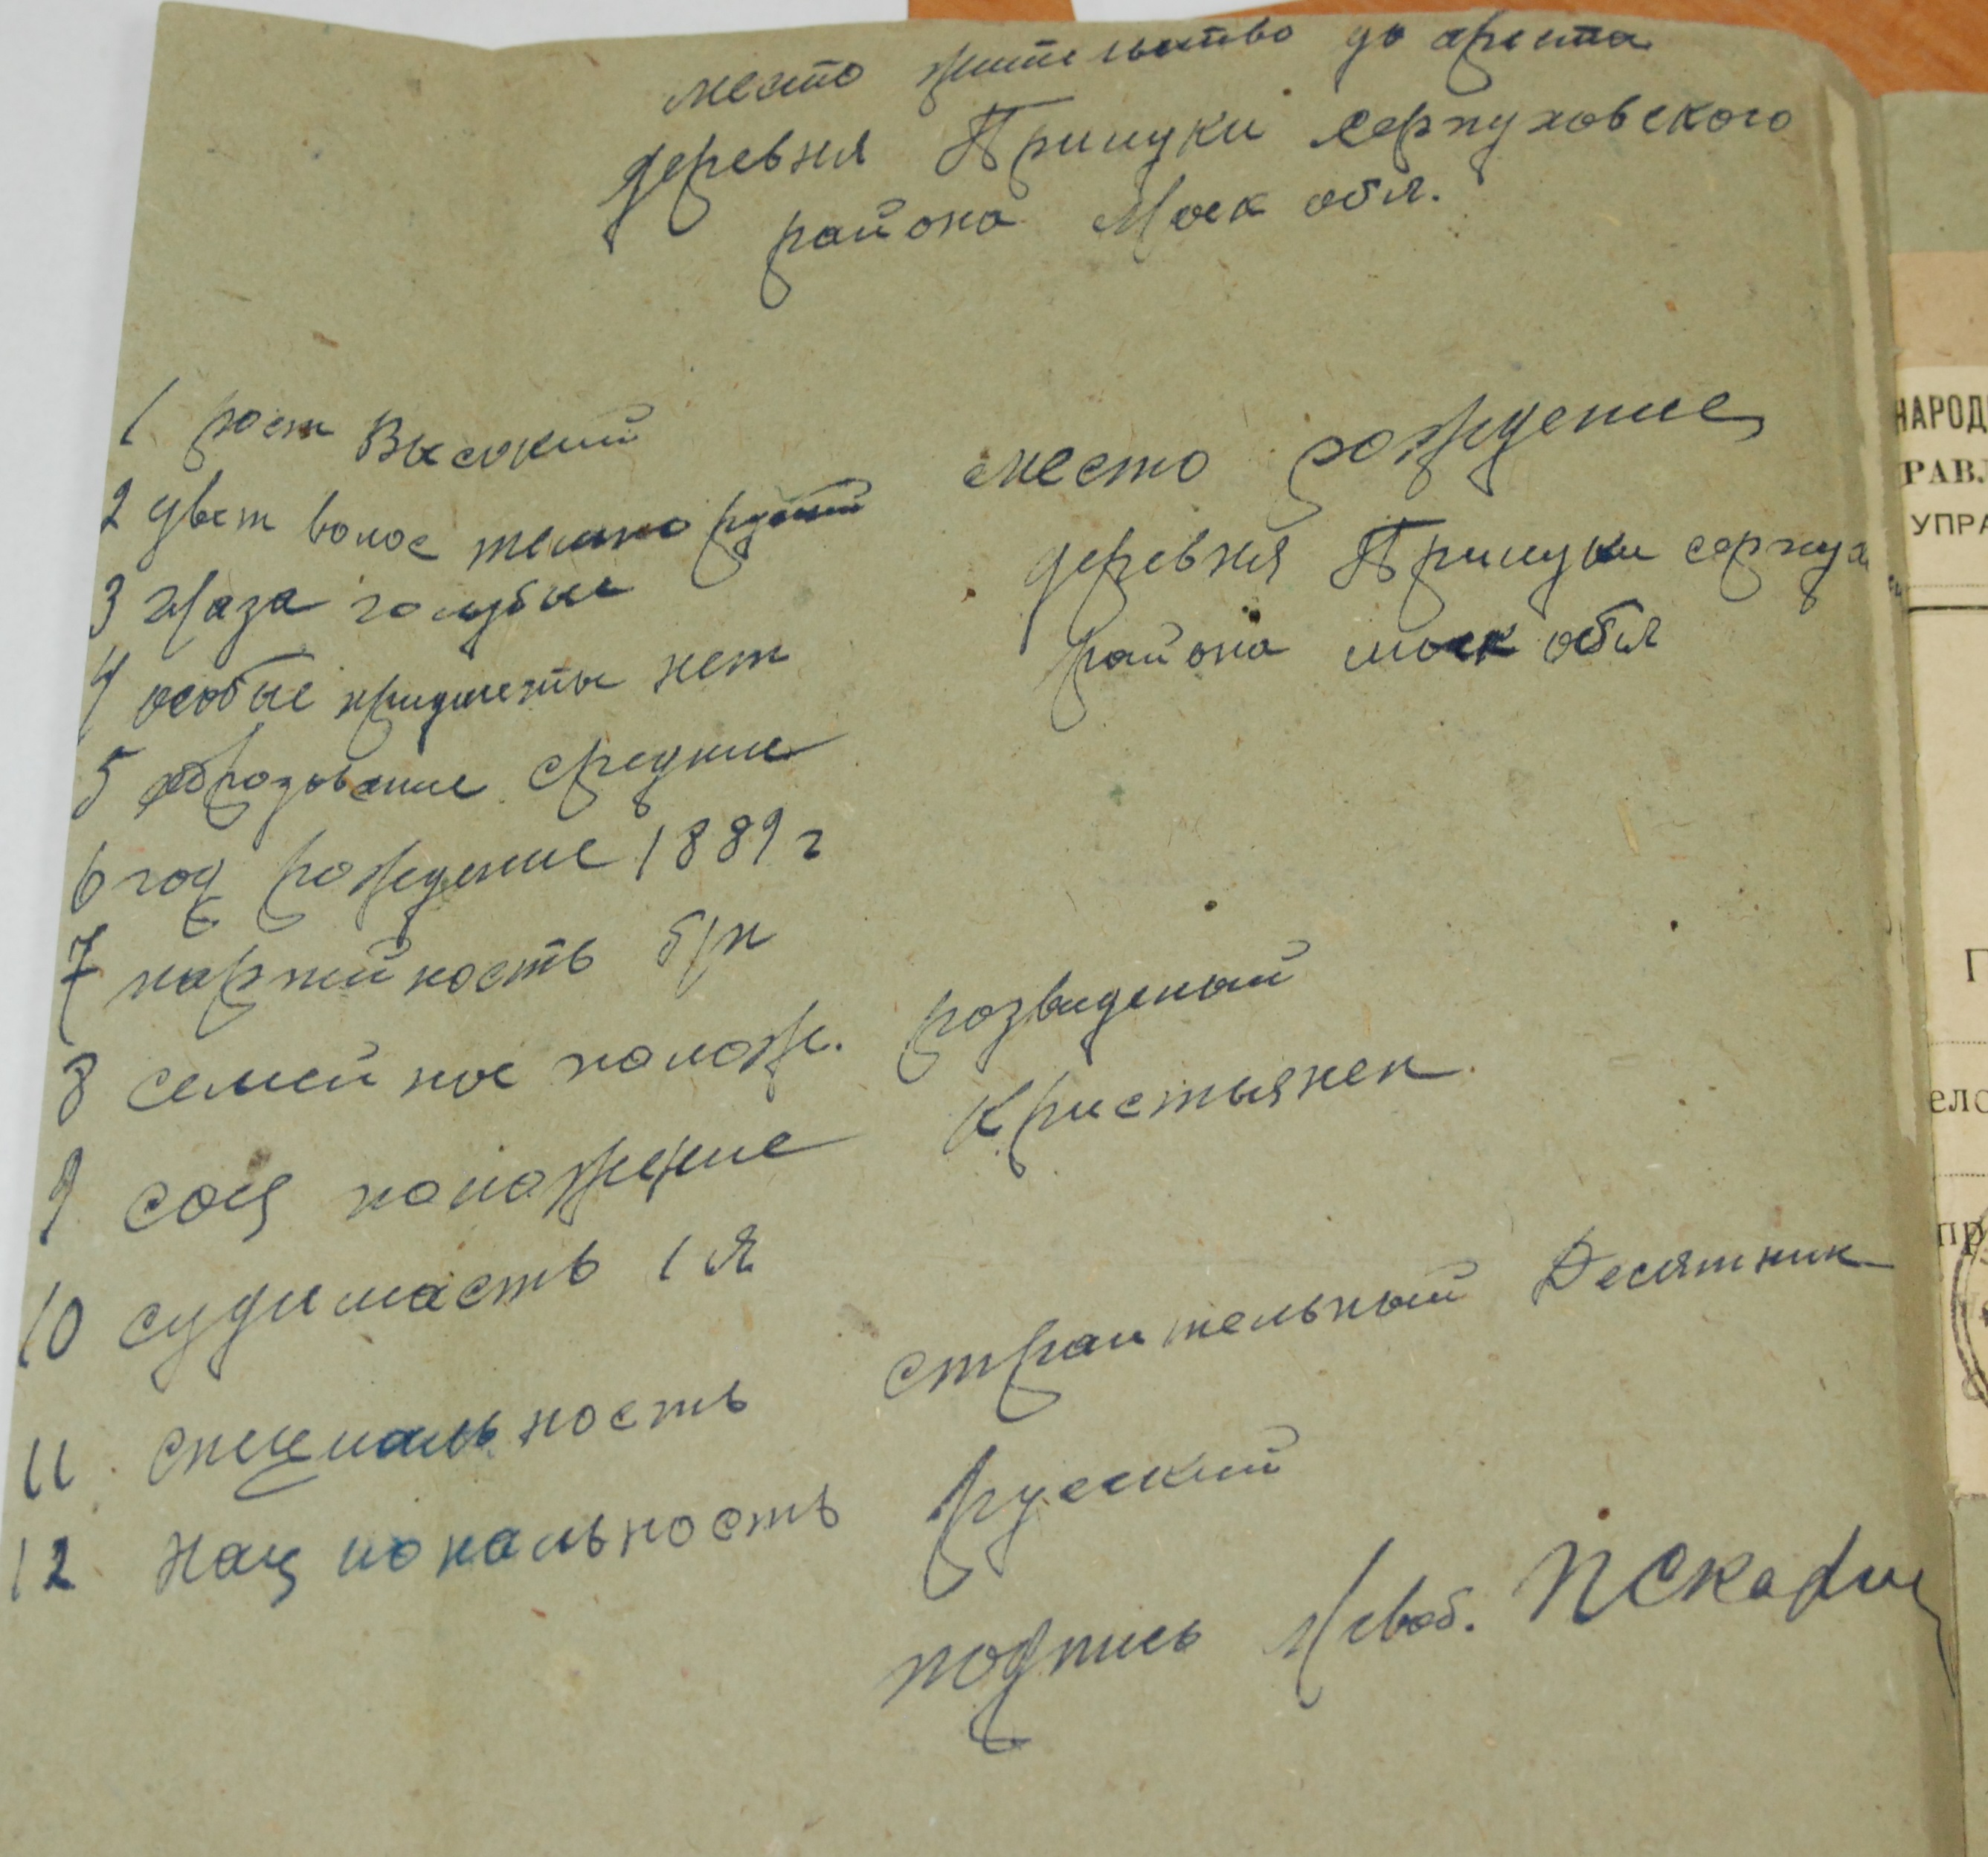 место жительство до ареста
деревня Прилуки Серпуховского
района Моск обл.
1 рост Высокий
2 цвет волос темно русый
3 глаза голубые
4 особые придметы нет
5 образование средние
6 год рождение 1889 г
7 партийность б/п
8 семейное полож. розведеный
9 соц положение Кристьянен
10 судимасть 1 я
11 специальность страительный Десятник
12 национальность русский
место рождение
деревня Прилуки серпух
района моск обл
подпись
НАРОД
РАВЛ
УПРА
П
ело
пр